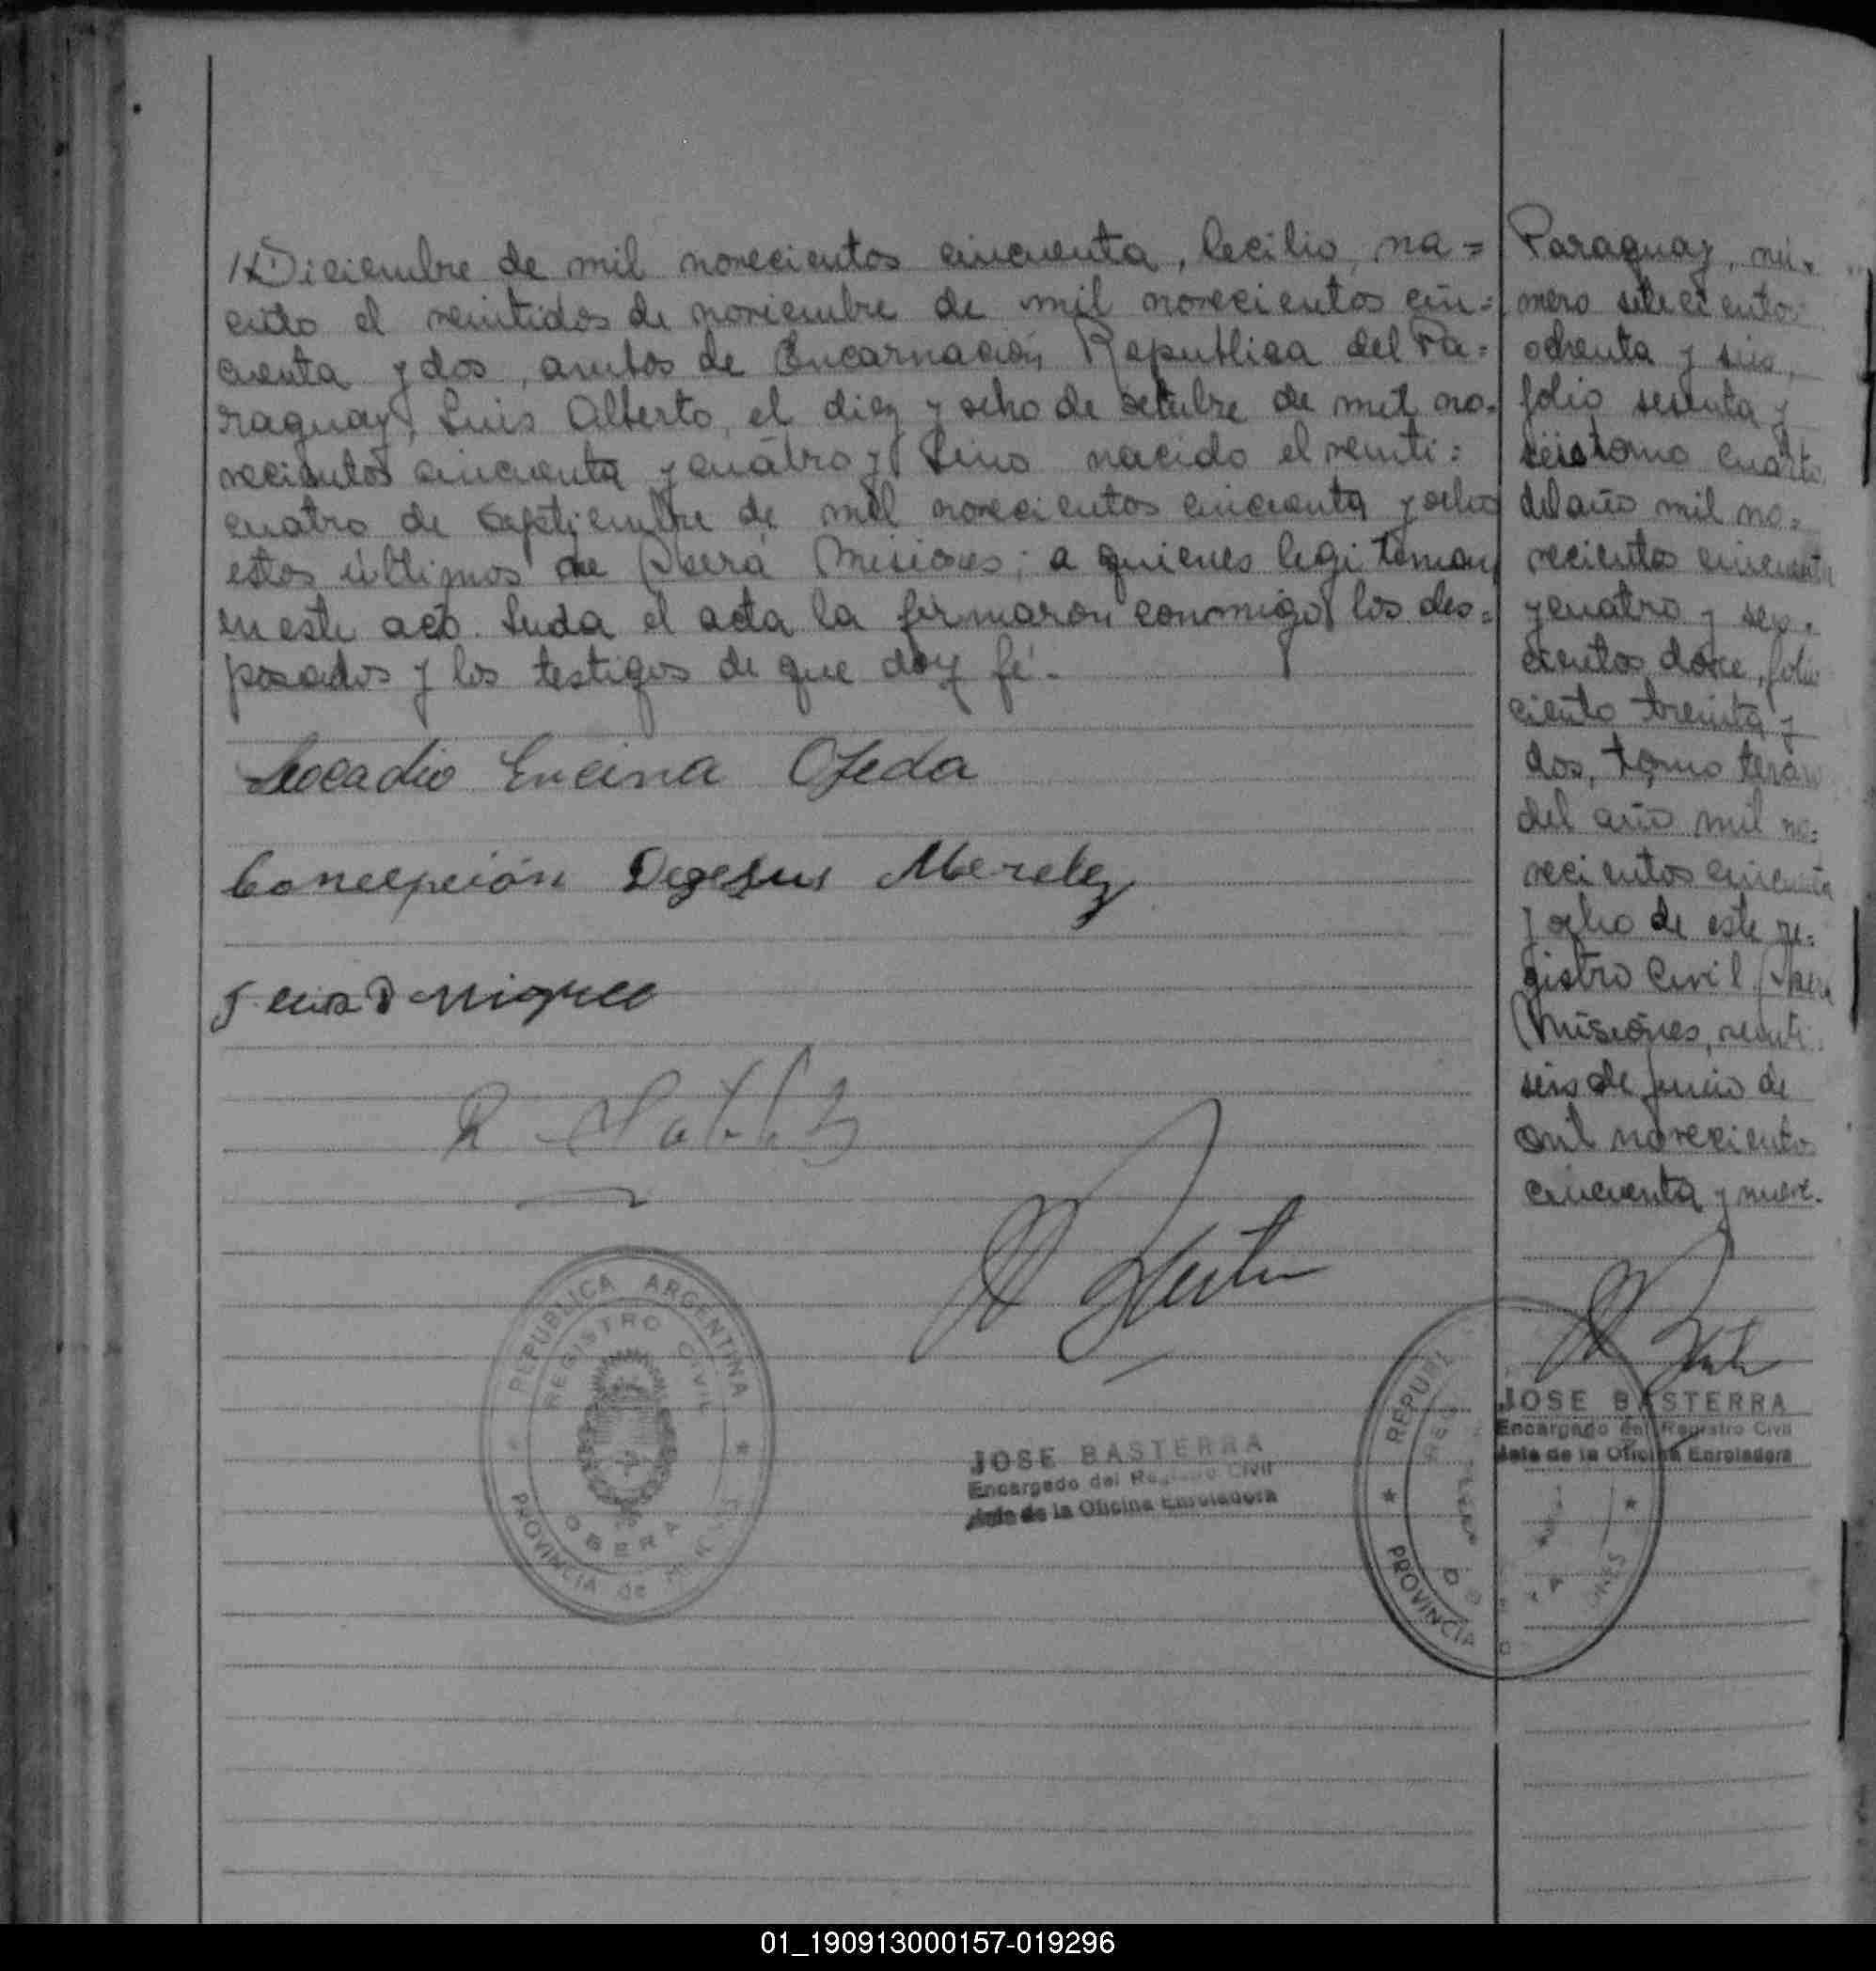 Diciembre de mil novecientos cincuenta, Cecilio, na=
cido el veintidos de noviembre de mil novecientos cin=
cuenta y dos, ambos de Encarnación, Republica del Pa=
raguay, Luis Alberto, el diez y ocho de octubre de mil no=
vecientos cincuenta y cuatro y Lino nacido el veinti=
cuatro de septiembre de mil novecientos cincuenta y ocho
estos últimos de Oberá Misiones; a quienes legitiman
en este acto. Leida el acta la firmaron conmigo los des=
posados y los testigos de que doy fé.-
Leocadio Encina Ojeda
Concepción Dejesus Merelez
JOSE BASTERRA
Encargado del Registro Civil
Jefe de la Oficina Enroladora
REPUBLICA ARGENTINA
REGISTRO CIVIL
OBERA
PROVINCIA de MISIONES
Paraguay, nú=
mero setecientos
ochenta y seis,
folio sesenta y
seis tomo cuarto
del año mil no=
vecientos cincuenta
y cuatro y seis=
cientos doce, folio
ciento treinta y
dos, tomo tercero
del año mil no=
vecientos cincuenta
y ocho de este re=
gistro Civil. Oberá
Misiones, veinti=
seis de junio de
mil novecientos
cincuenta y nueve.
JOSE BASTERRA
Encargado del Registro Civil
Jefe de la Oficina Enroladora
REPUBL
REG
PROVINCIA
ONES
01_190913000157-019296